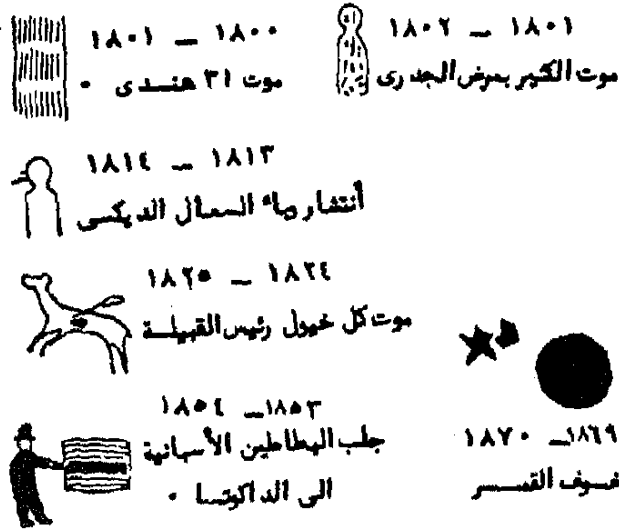 ١٨٠٠ — ١٨٠١
موت ٣١ هندى ٠
١٨٠١ — ١٨٠٢
موت الكثير بمرض الجدرى
١٨١٣ — ١٨١٤
أنتشار وباء السعال الديكى
١٨٢٤ — ١٨٢٥
موت كل خيول رئيس القبيلة
١٨٥٣ — ١٨٥٤
جلب البطاطين الأسبانية
الى الداكوتسا ٠
١٨٦٩ — ١٨٧٠
خسوف القمر